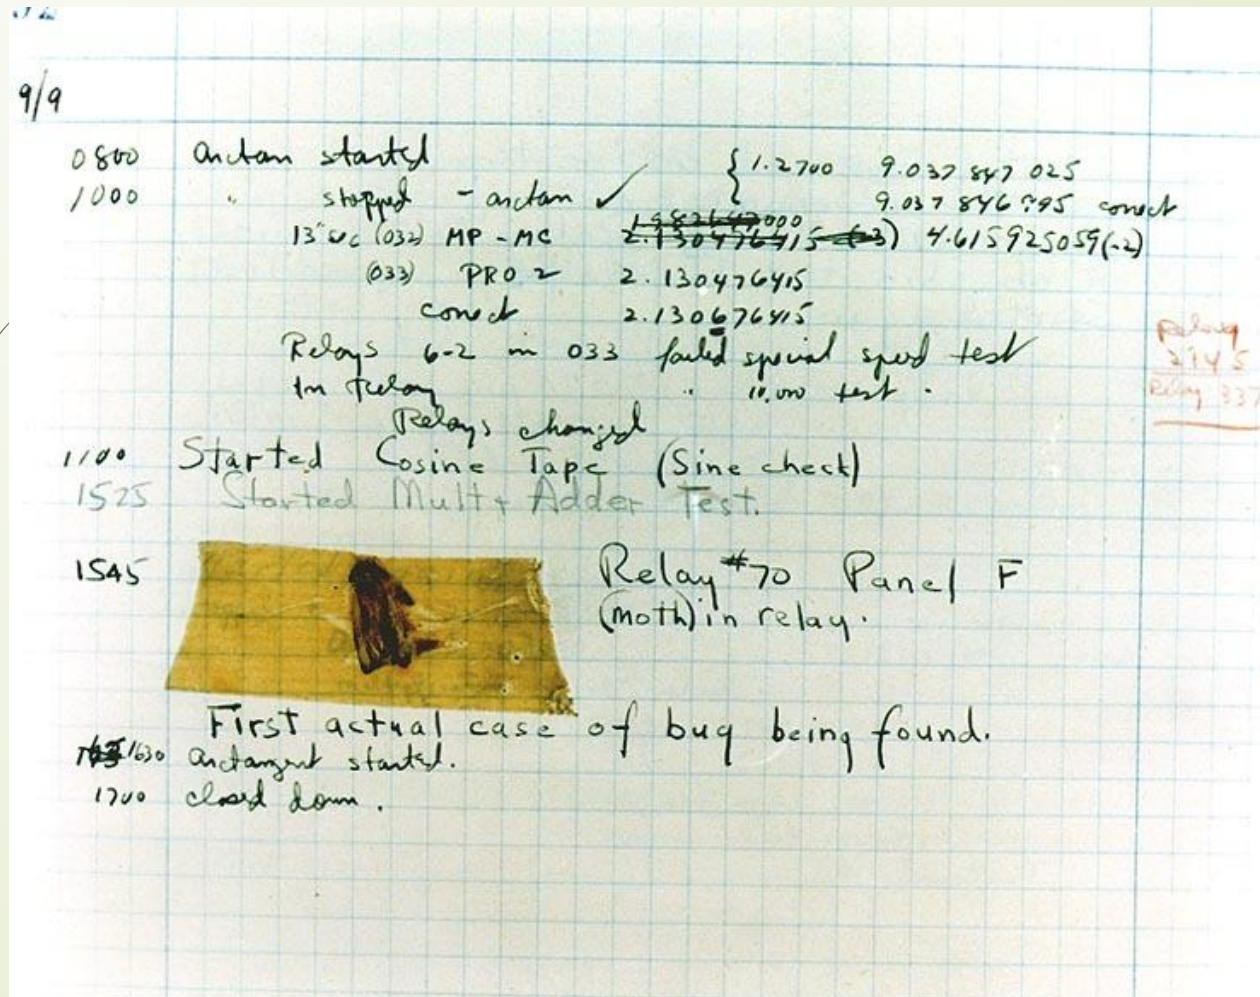 9/9
0800 arctan started { 1.2700 9.037 847 025
1000 " stopped - arctan ✓ 9.037 846 995 correct
13" sec (032) MP - MC 2.130476415 (-3) 4.615925059(-2)
(033) PRO 2 2.130476415
correct 2.130676415
Relays 6-2 in 033 failed special speed test
In Relay " 10,000 test .
Relays changed
Relay
Relay 337
1100 Started Cosine Tape (Sine check)
1525 Started Mult + Adder Test.
1545 Relay #70 Panel F
(moth) in relay.
First actual case of bug being found.
1630 arctangent started.
1700 closed down.